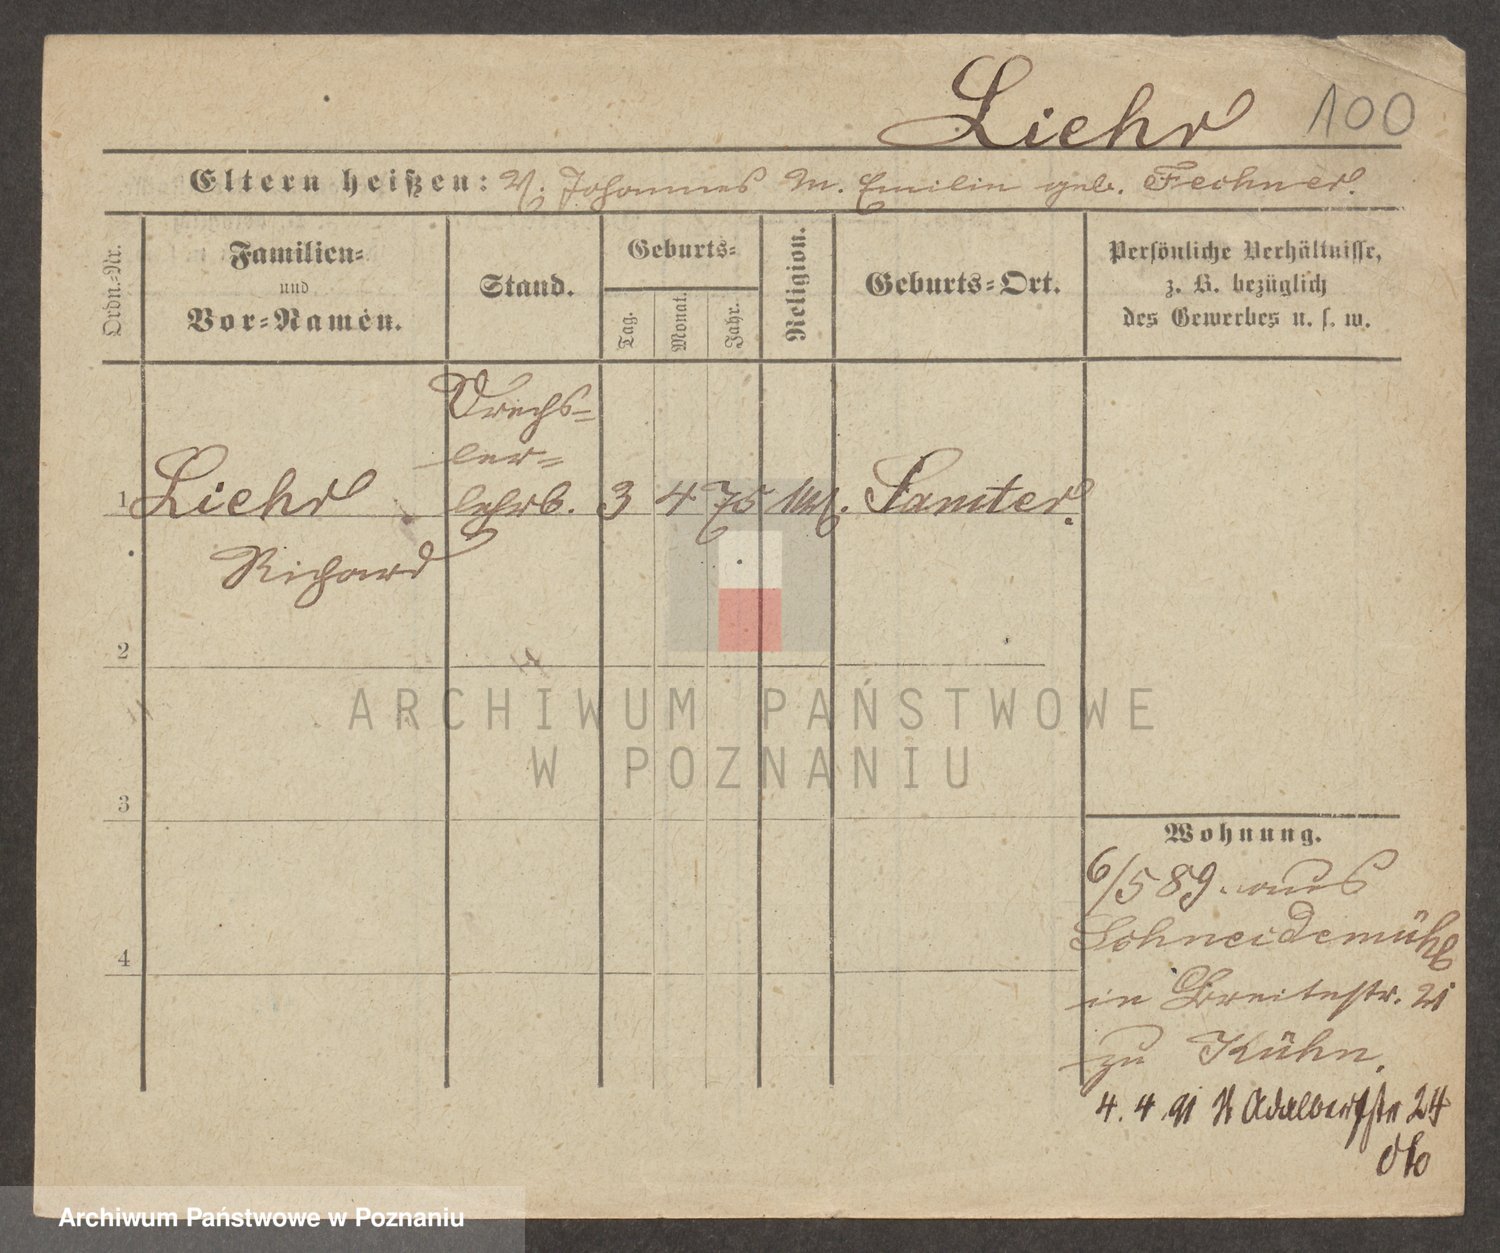 Liehr 100
Eltern heißen: V. Johannes M. Emilie geb. Fechner.
Ordn.-Nr.
Familien-
und
Vor-Namen.
Stand.
Geburts-
Tag.
Monat.
Jahr.
Religion.
Geburts-Ort.
Persönliche Verhältnisse,
z. B. bezüglich
des Gewerbes u. s. w.
Drechs-
ler-
1 Liehr lehrb. 3 4 75 Samter.
Richard
2
3
4
Wohnung.
6/5 89. aus
Schneidemühl
in Breitestr. 21
zu Kühn.
4. 4 91 Adalbertstr 24
ARCHIWUM PAŃSTWOWE
W POZNANIU
Archiwum Państwowe w Poznaniu